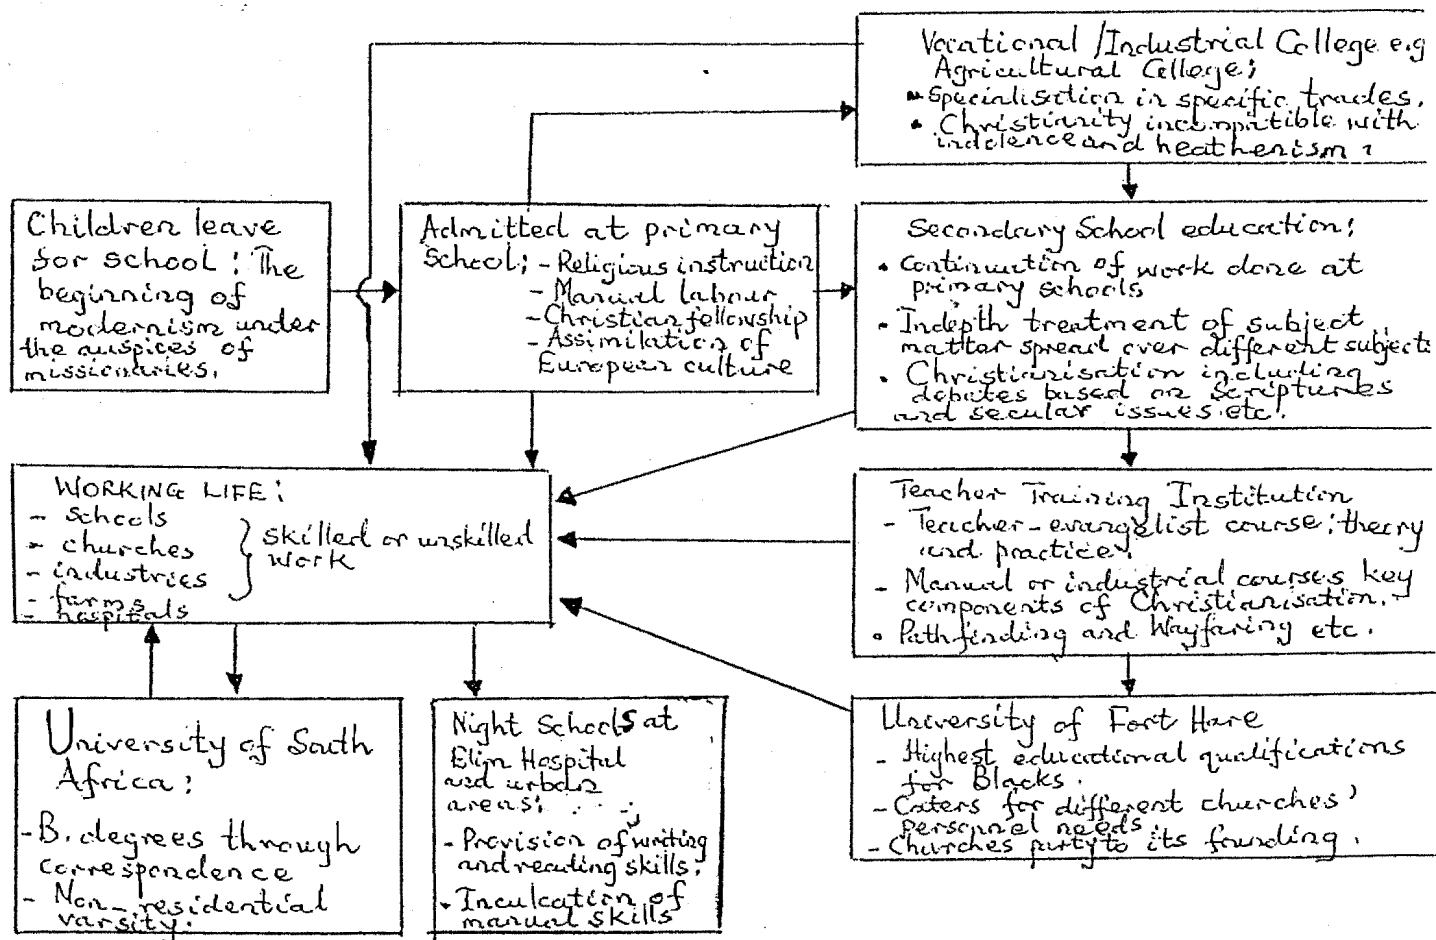 Vocational / Industrial College e.g
Agricultural College;
• Specialisation in specific trades.
• Christianity incompatible with
indolence and heathenism.
Children leave
for school: The
beginning of
modernism under
the auspices of
missionaries.
Admitted at primary
School; - Religious instruction
- Manual labour
- Christian fellowship
- Assimilation of
European culture
Secondary School education;
• Continuation of work done at
primary schools
• Indepth treatment of subject
matter spread over different subjects
• Christianisation including
debates based on Scriptures
and secular issues etc.
WORKING LIFE:
- schools
- churches
- industries
- farms
- hospitals
skilled or unskilled
work
Teacher Training Institution
- Teacher-evangelist course: theory
and practice.
- Manual or industrial courses key
components of Christianisation.
• Pathfinding and Wayfaring etc.
University of South
Africa:
- B. degrees through
correspondence
- Non-residential
varsity.
Night Schools at
Elim Hospital
and urban
areas:
- Provision of writing
and reading skills.
• Inculcation of
manual skills
University of Fort Hare
- Highest educational qualifications
for Blacks.
- Caters for different churches'
personnel needs.
- Churches party to its founding.